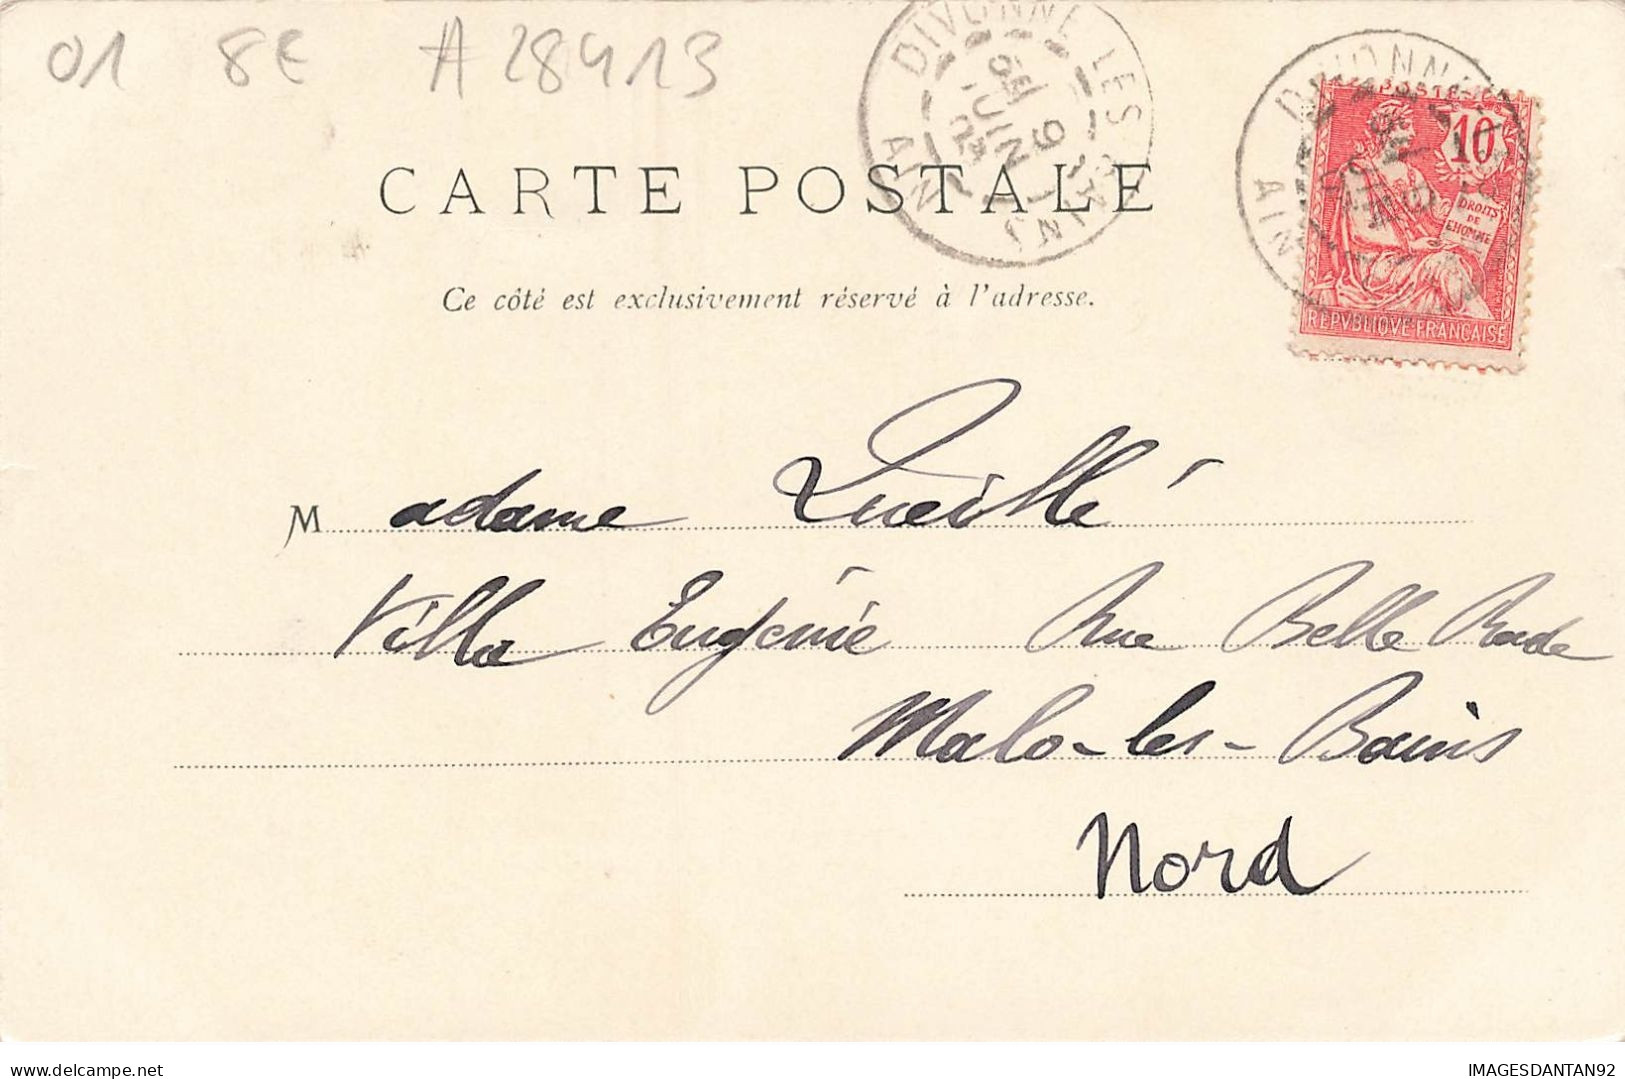 01 8E A 28413
DIVONNE LES BAINS
9
JUIN
03
AIN
POSTES
10
DROITS
DE
L'HOMME
REPVBLIQVE FRANÇAISE
CARTE POSTALE
Ce côté est exclusivement réservé à l'adresse.
Madame
Villa Eugénie Rue Belle Rade
Malo-les-Bains
Nord
IMAGESDANTAN92